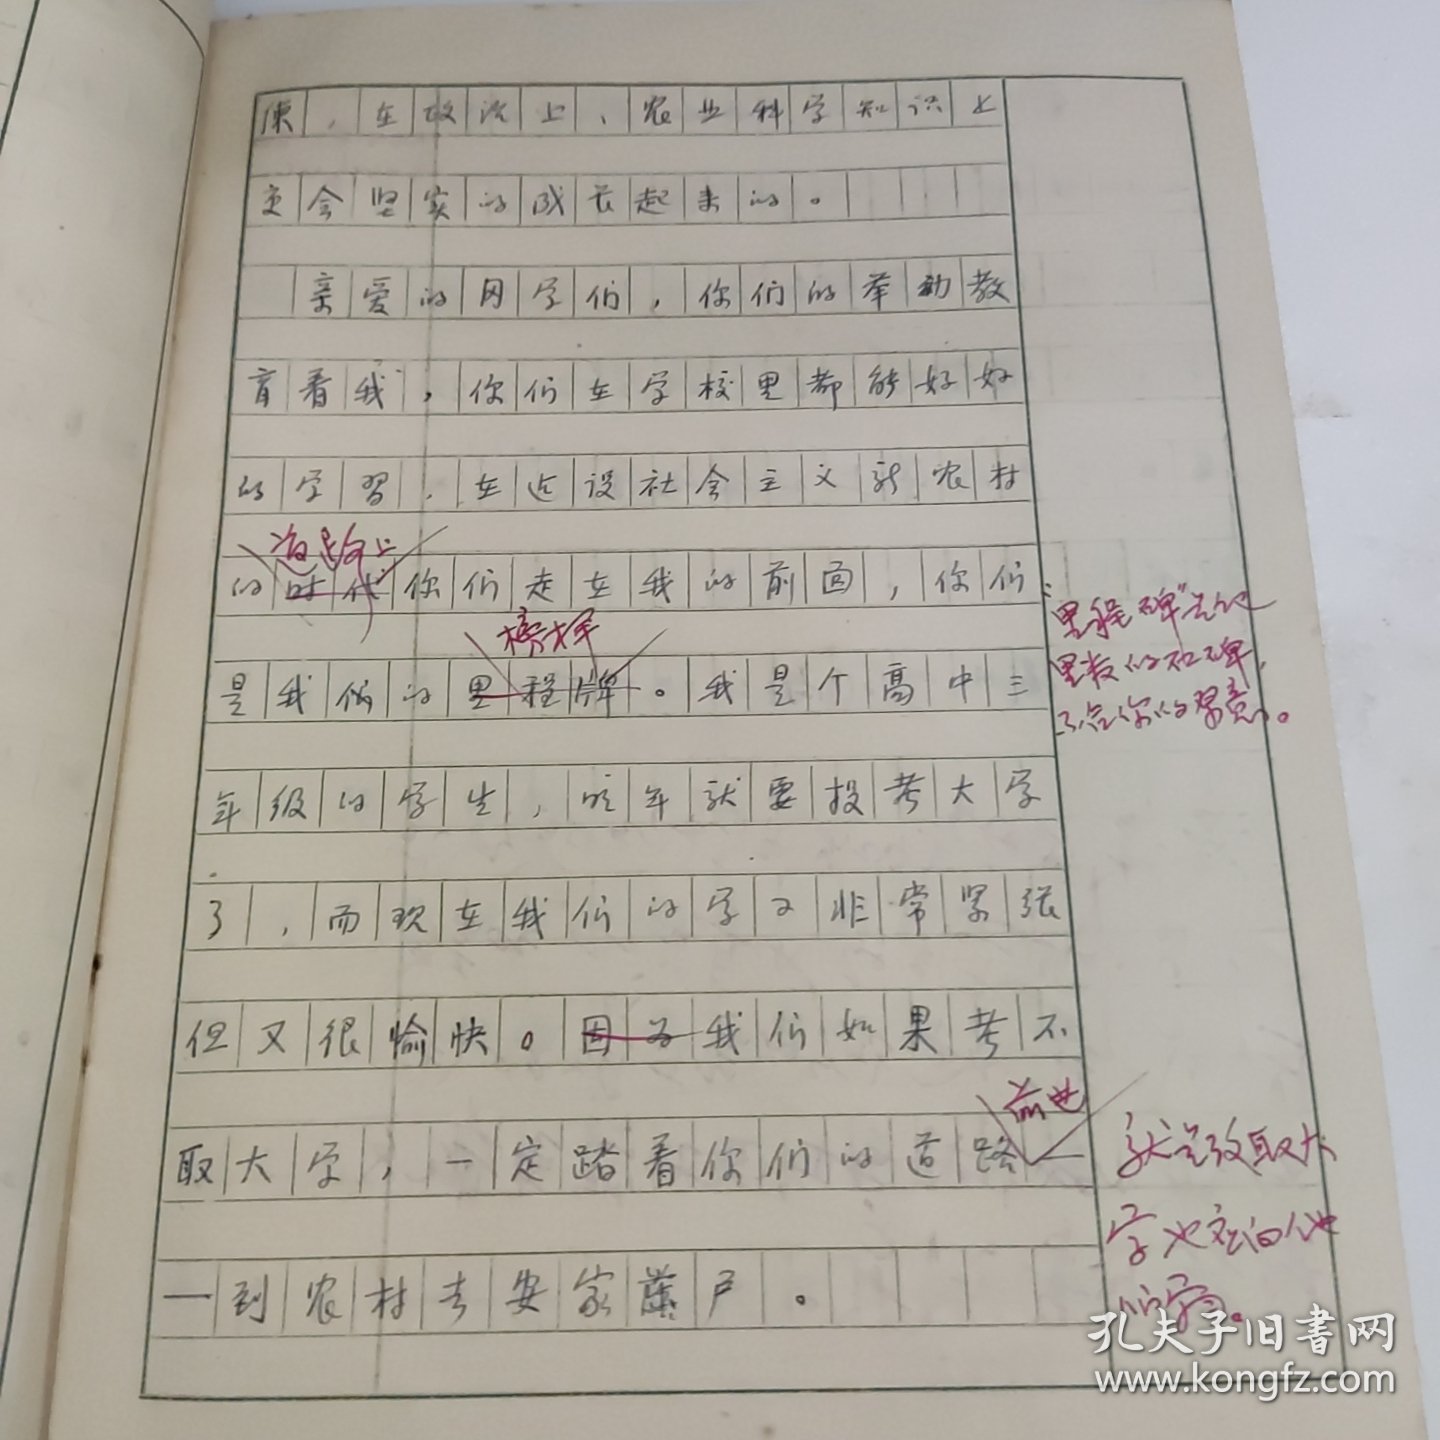 康，在政治上、农业科学知识上
更会坚实的成长起来的。
亲爱的同学们，你们的举动教
育着我，你们在学校里都能好好
的学習，在近设社会主义新农村
道路上
的时代你们走在我的前面，你们
榜样
是我们的里程牌。我是个高中三
年级的学生，明年就要投考大学
了，而现在我们的学习非常紧张
但又很愉快。因为我们如果考不
前进
取大学，一定踏着你们的道路—
—到农村去安家落户。
"里程碑"是记
里数的石碑，
不合你的原意。
就是考取大
学也应向他
们学习。
孔夫子旧书网
www.kongfz.com